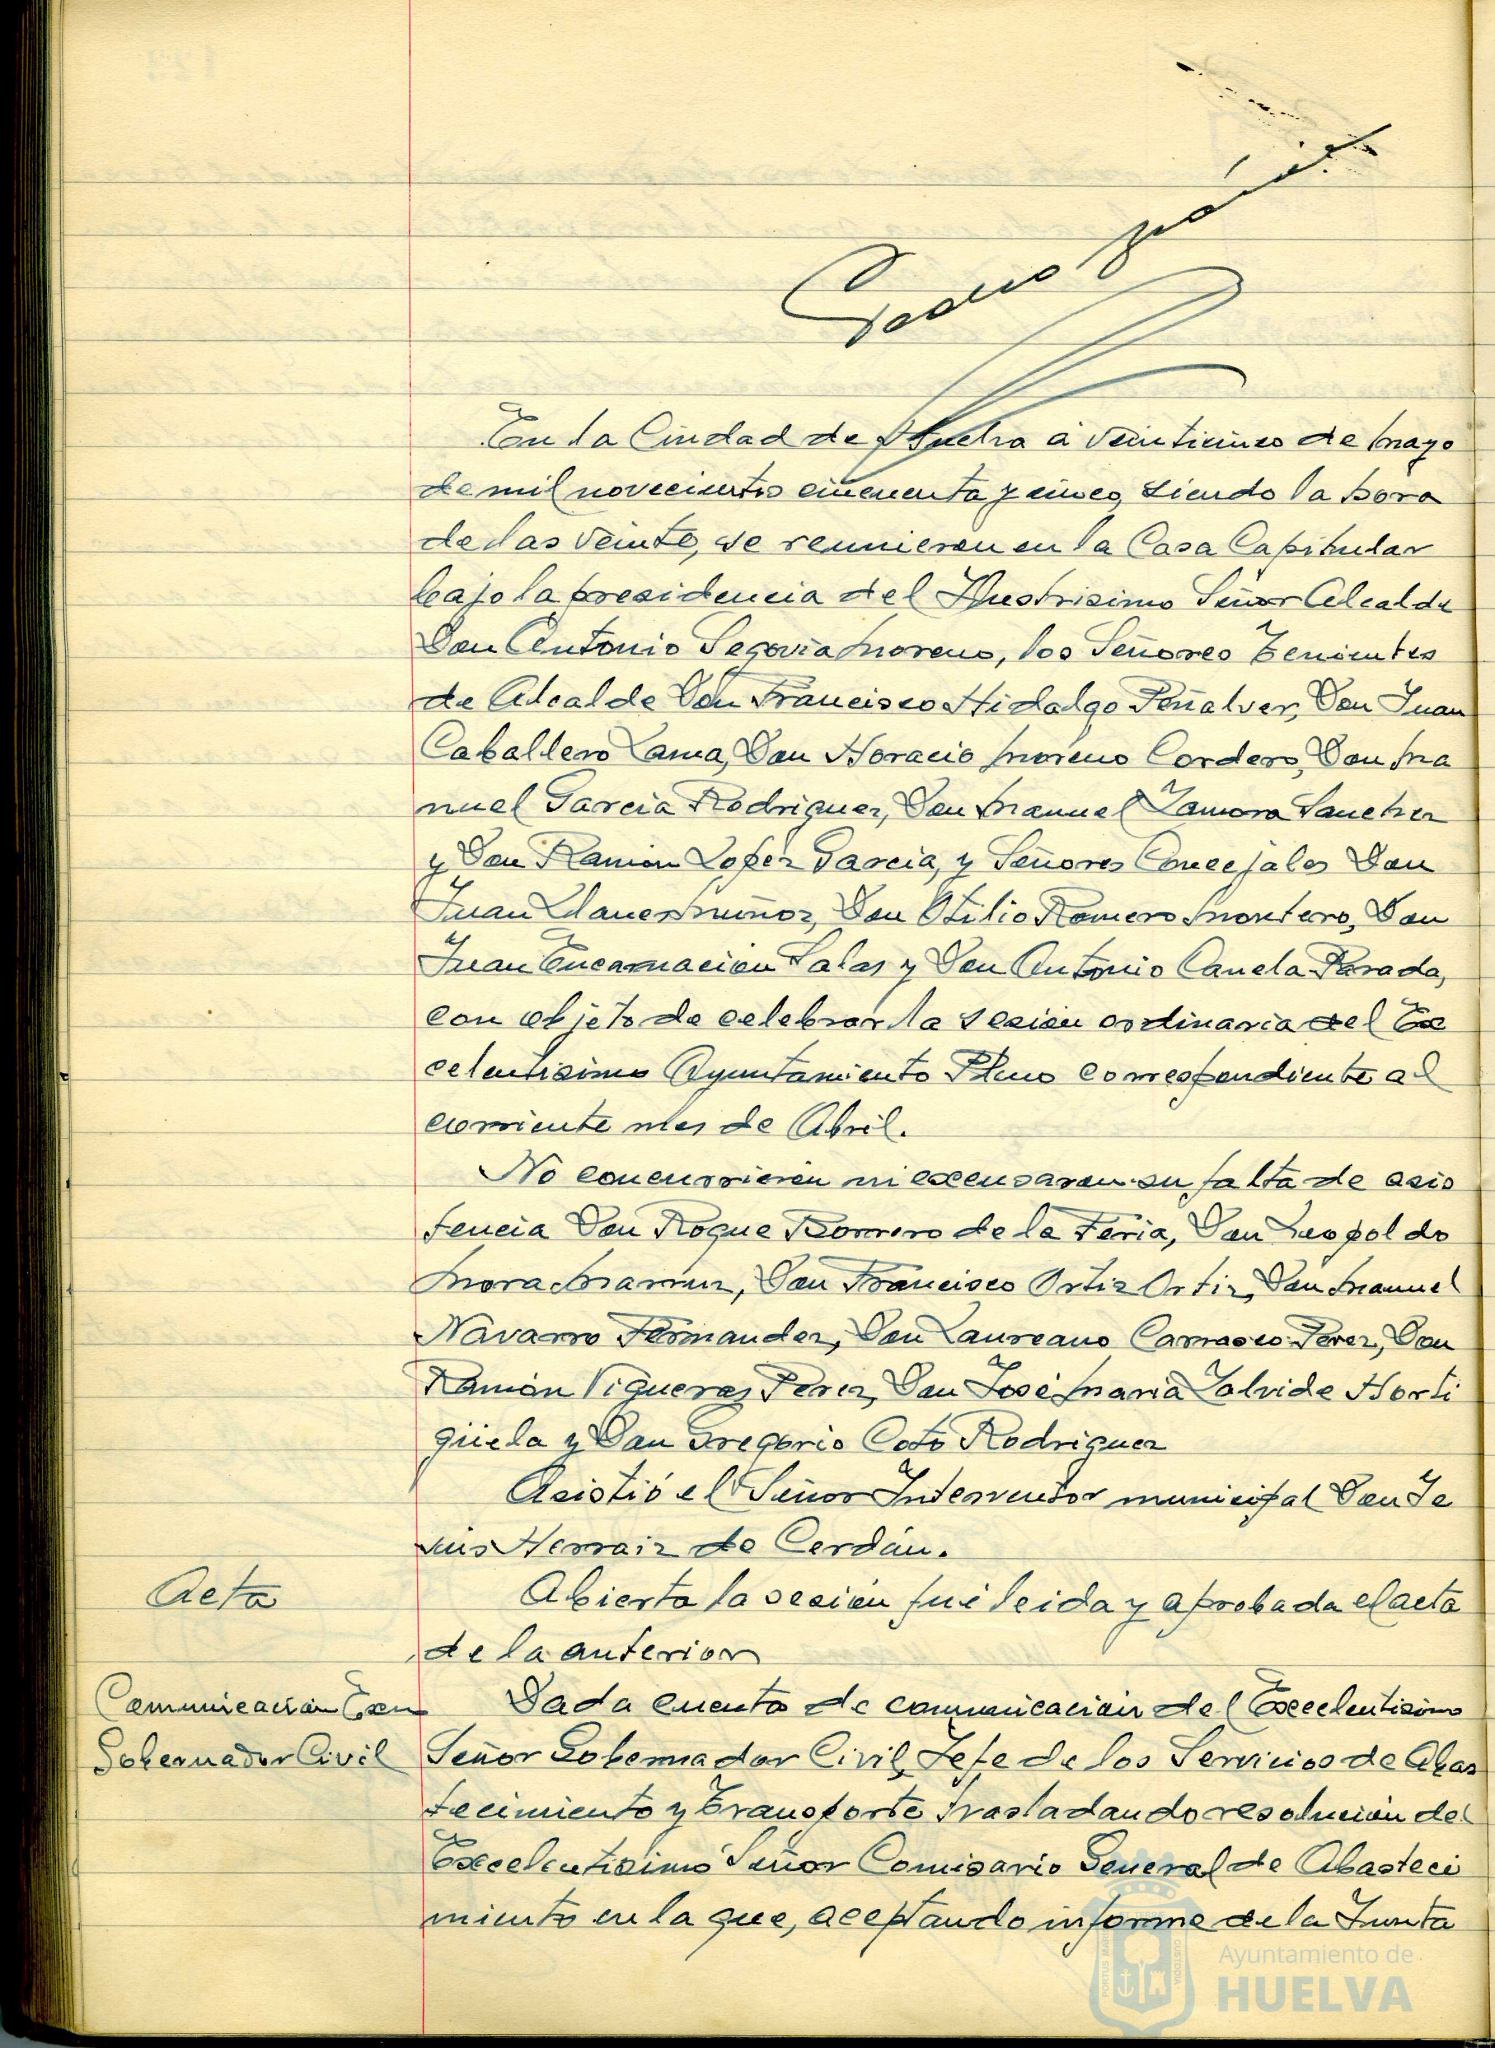 En la Ciudad de Huelva a veinticinco de Mayo
de mil novecientos cincuenta y cinco, siendo la hora
de las veinte, se reunieron en la Casa Capitular
bajo la presidencia del Ilustrisimo Señor Alcalde
Don Antonio Segovia Moreno, los Señores Tenientes
de Alcalde Don Francisco Hidalgo Peñalver, Don Juan
Caballero Lama, Don Horacio Moreno Cordero, Don Ma
nuel Garcia Rodriguez, Don Manuel Zamora Sanchez
y Don Ramón Lopez Garcia, y Señores Concejales Don
Juan Llanes Muñoz, Don Otilio Romero Montero, Don
Juan Encarnacion Salas y Don Antonio Canela Parada,
con objeto de celebrar la sesión ordinaria del Ex
celentisimo Ayuntamiento Pleno correspondiente al
corriente mes de Abril.
No concurrieron ni excusaron su falta de asis
tencia Don Roque Borrero de la Feria, Don Leopoldo
Mora Don Francisco Ortiz Ortiz, Don Manuel
Navarro Fernandez, Don Laureano Carrasco Perez, Don
Ramón Vigueras Perez, Don José María Zalvide Horti
güela y Don Gregorio Coto Rodriguez
Asistió el Señor Interventor municipal Don Je
sús Herraiz de Cerdán.
Acta
Abierta la sesión fué leida y aprobada el acta
de la anterior
Comunicación Exm
Gobernador Civil
Dada cuenta de comunicación del Excelentisimo
Señor Gobernador Civil, Jefe de los Servicios de Abas
tecimiento y Transporte trasladando resolución del
Excelentisimo Señor Comisario General de Abasteci
miento en la que, aceptando informe de la Junta
Ayuntamiento de
HUELVA